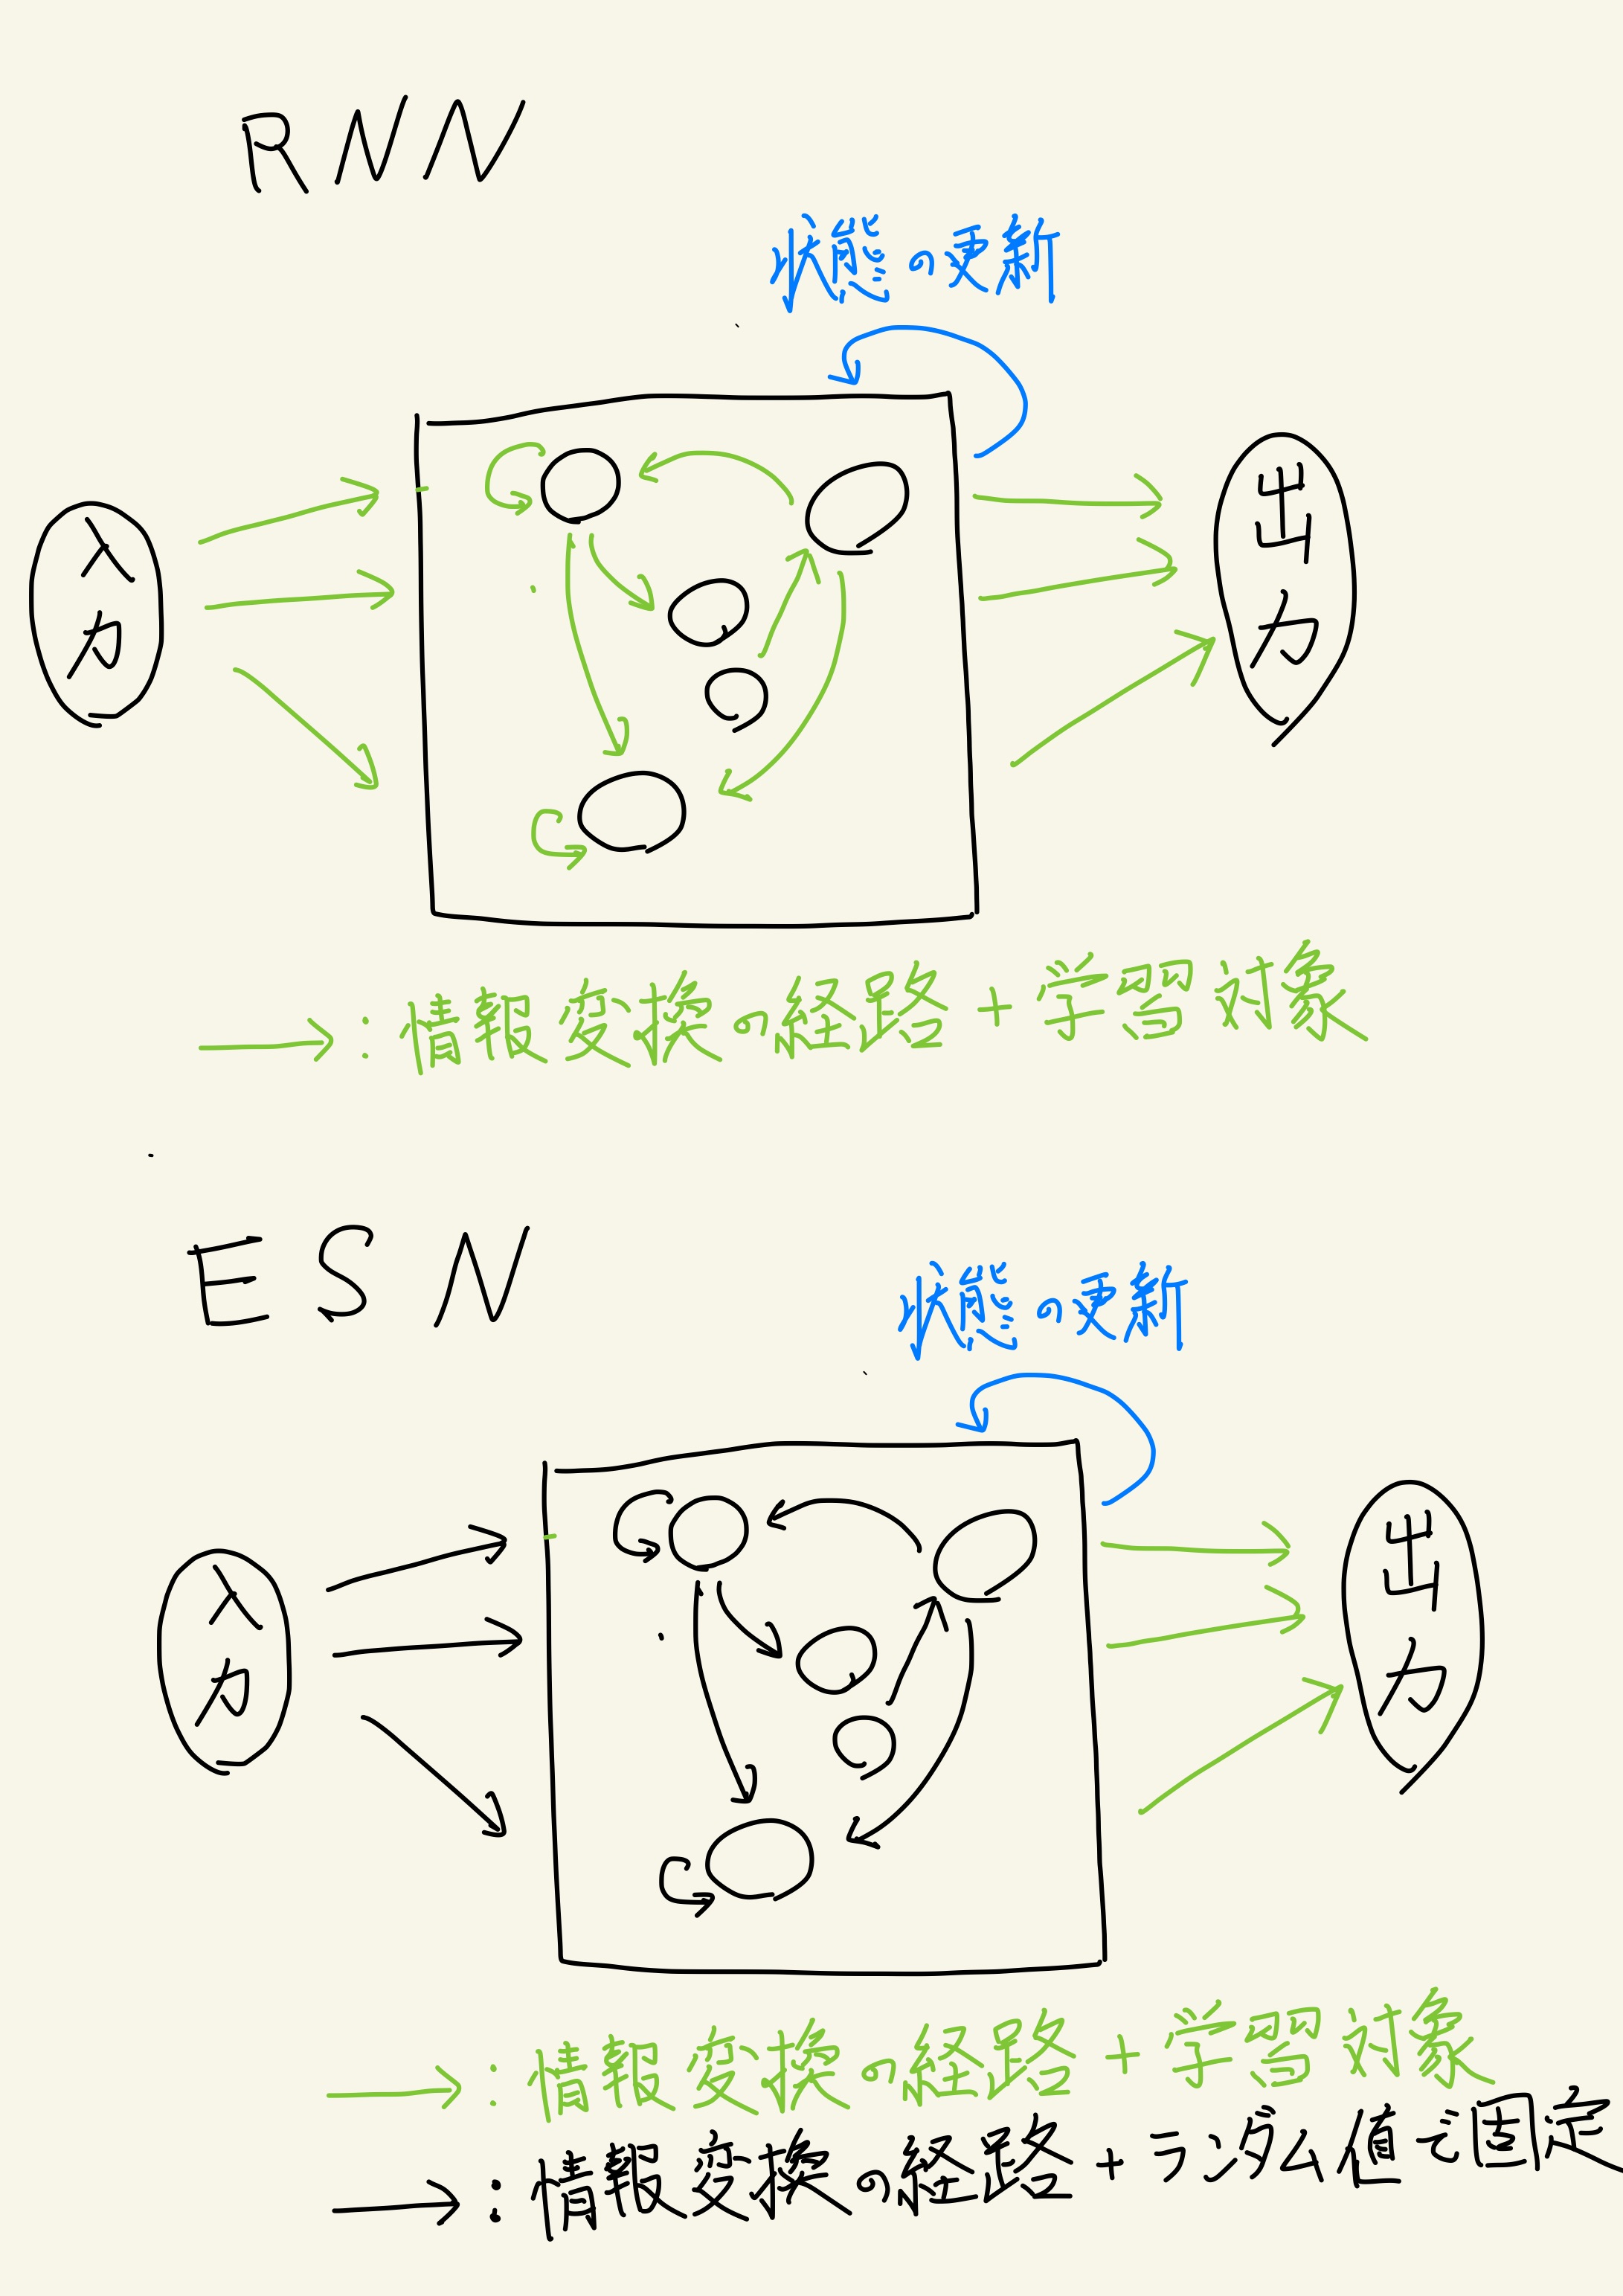 RNN
状態の更新
入力
出力
→: 情報交換の経路+学習対象
ESN
状態の更新
入力
出力
→: 情報交換の経路+学習対象
→: 情報交換の経路+ランダム値で固定